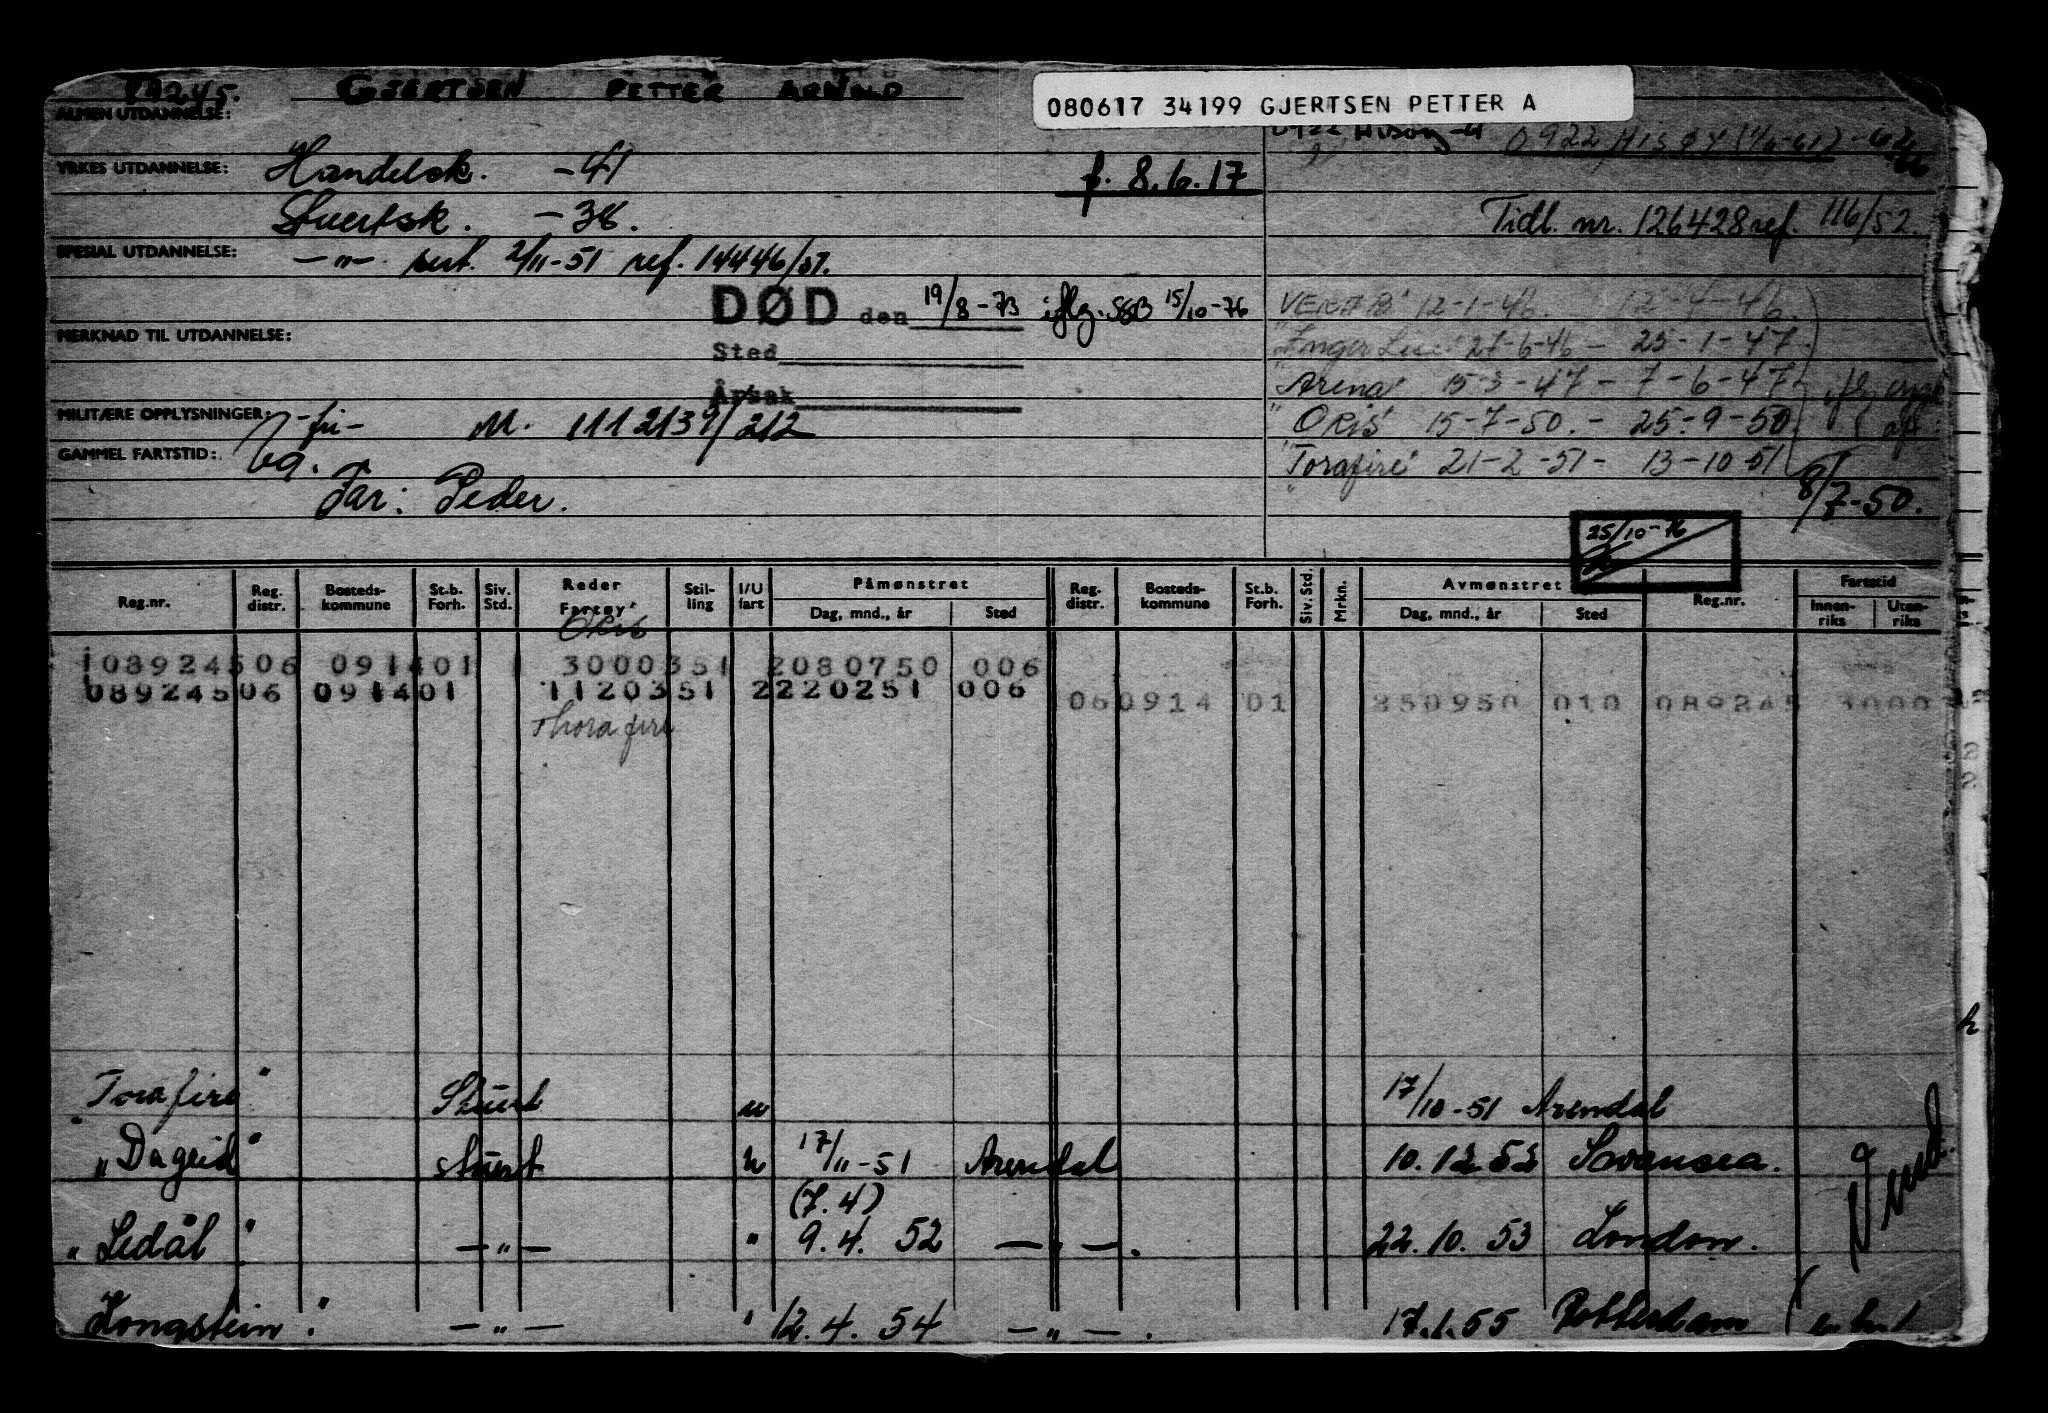 89245. GJERTSEN PETTER ARNOLD
080617 34199 GJERTSEN PETTER A
ALMEN UTDANNELSE:
0922 HISØY (1/6-61) -62
YRKES UTDANNELSE: Handelsk. -41
f. 8.6.17
Stuertsk. -38.
Tidl. nr. 126428 ref. 116/52.
SPESIAL UTDANNELSE: -"- sert. 2/11-51 ref. 14446/51.
DØD den 19/8-73 iflg. SSB 15/10-76
12-1-46. 12-4-46.
MERKNAD TIL UTDANNELSE:
Sted
"Inger Lise" 27-6-46 - 25-1-47
Årsak
"Arena" 15-3-47 - 7-6-47
MILITÆRE OPPLYSNINGER: -fri- M. 1112139/212
"ORIS" 15-7-50. - 25-9-50
GAMMEL FARTSTID:
"Torafire" 21-2-51 - 13-10-51
Far: Peder.
8/7-50.
25/10-76
Reg.nr. Reg. distr. Bosteds-kommune St.b. Forh. Siv. Std. Reder Fartøy Stil-ling I/U fart Påmønstret Dag, mnd., år Sted Reg. distr. Bosteds-kommune St.b. Forh. Siv. Std. Mrkn. Avmønstret Dag, mnd., år Sted Reg.nr. Fartstid Innen-riks Uten-riks
Oris
108924506 091401 3000351 2080750 006
08924506 091401 1120351 2220251 006
060914 01 250950 010 089245
Thorafire
"Torafire" Stuert u 17/10-51 Arendal
"Dagrid" stuert u 17/11-51 Arendal 10.12.52 Swansea.
(7.4)
"Ledål" -"- " 9.4.52 -"-. 22.10.53 London.
Longstein" -"- " 12.4.54 -"-. 17.1.55 Rotterdam